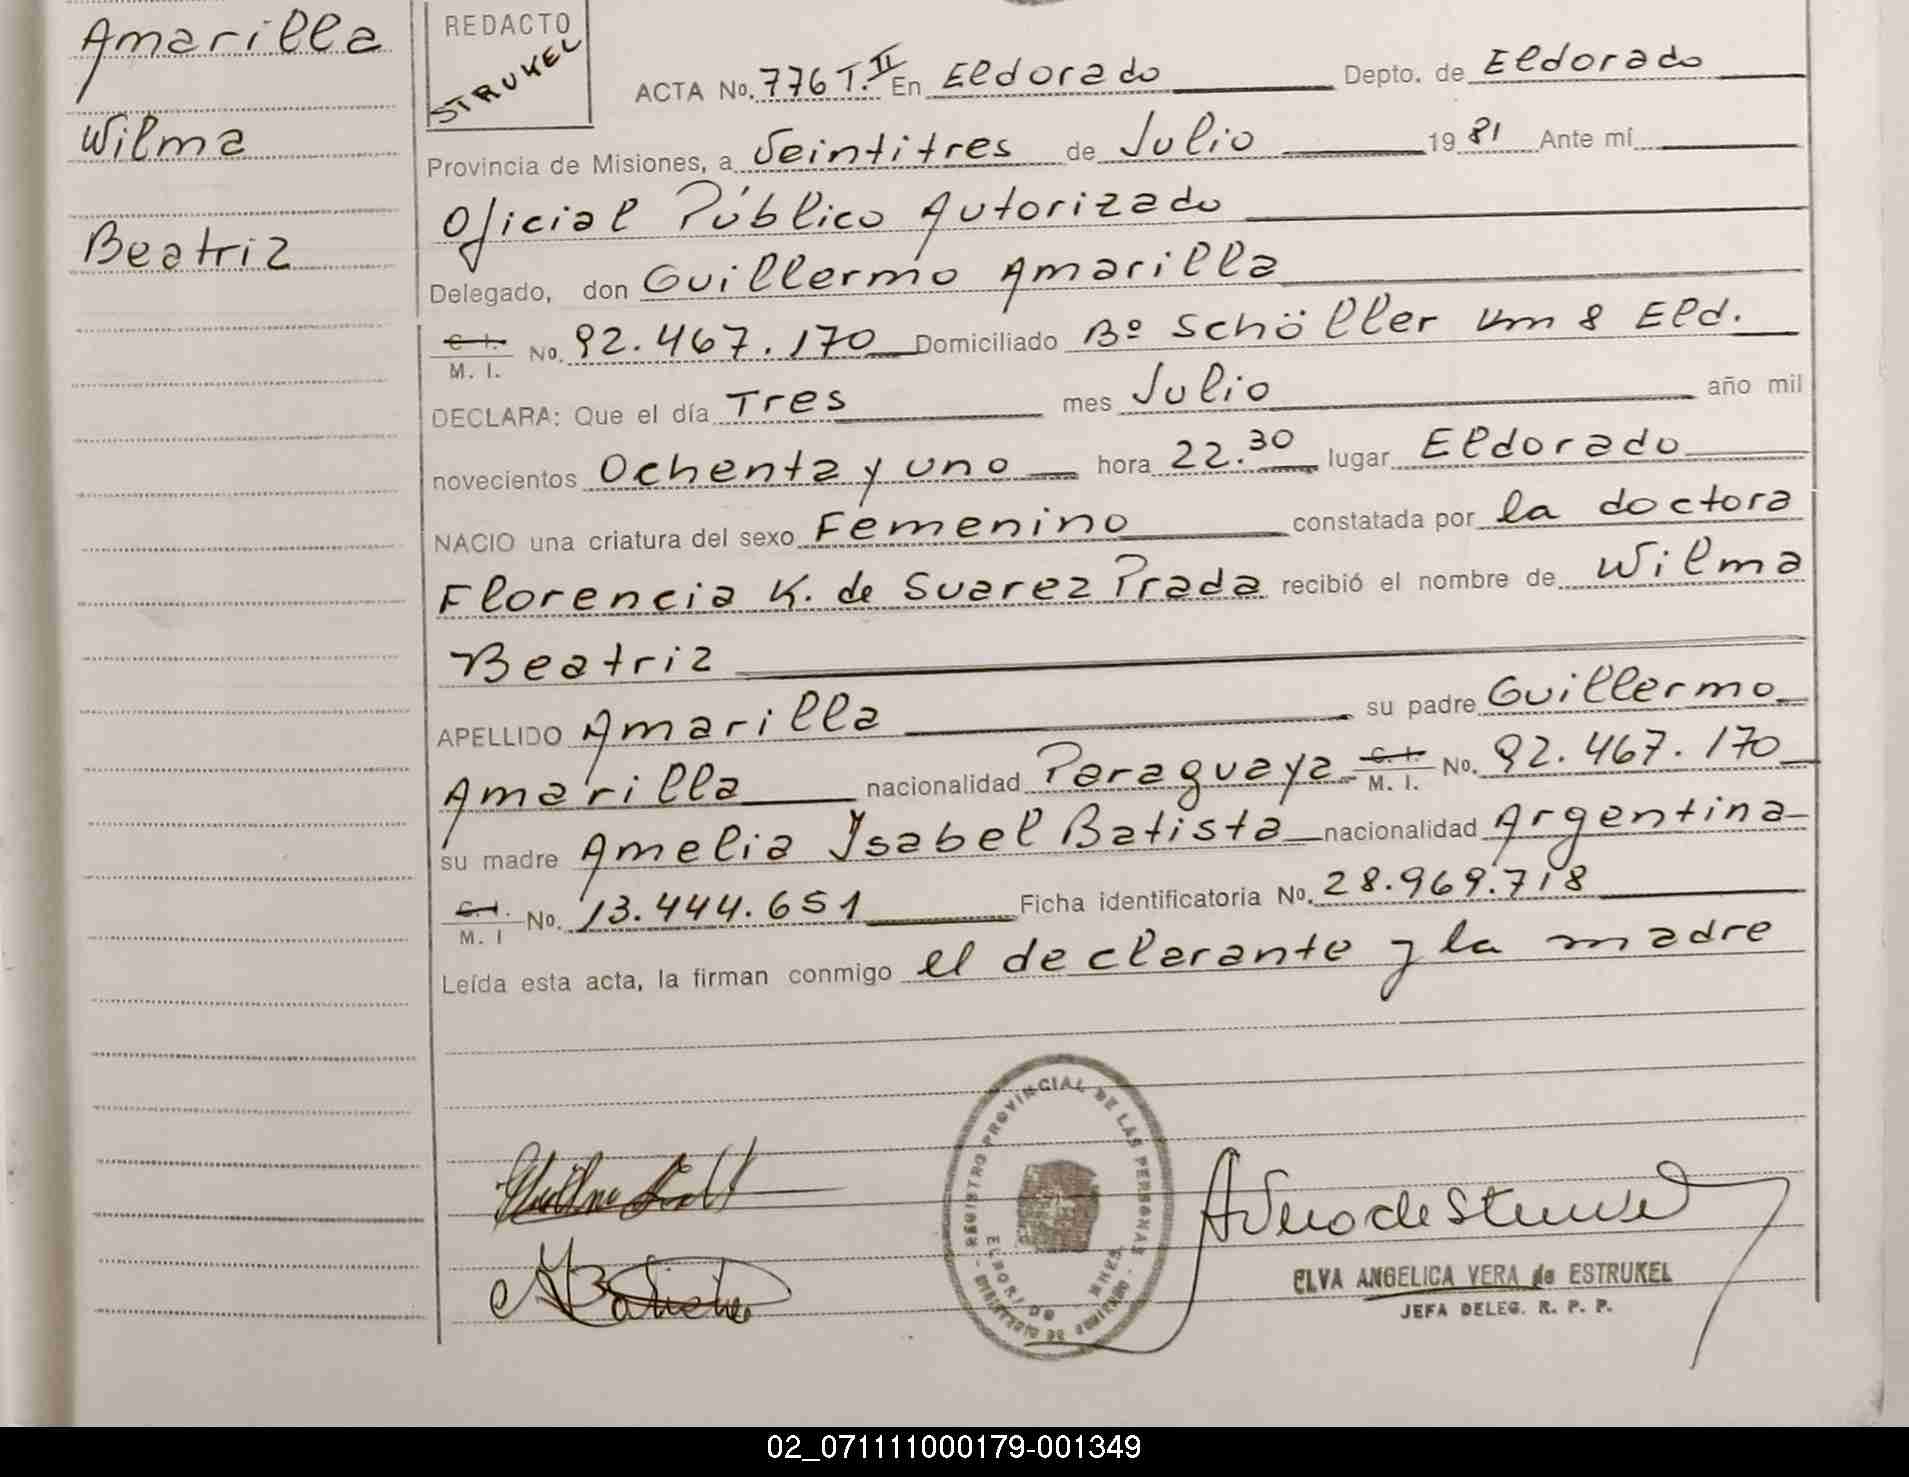 Amarilla
Wilma
Beatriz
REDACTO
STRUKEL
ACTA No. 776 T. II En Eldorado Depto. de Eldorado
Provincia de Misiones, a Veintitres de Julio 19 81 Ante mí
Oficial Público Autorizado
Delegado, don Guillermo Amarilla
C. I. M. I. No. 92.467.170 Domiciliado Bº Schöller Km 8 Eld.
DECLARA: Que el día Tres mes Julio año mil
novecientos Ochenta y uno hora 22.30 lugar Eldorado
NACIO una criatura del sexo Femenino constatada por la doctora
Florencia K. de Suarez Prada recibió el nombre de Wilma
Beatriz
APELLIDO Amarilla su padre Guillermo
Amarilla nacionalidad Paraguaya C. I. M. I. No. 92.467.170
su madre Amelia Isabel Batista nacionalidad Argentina
C. I. M. I No. 13.444.651 Ficha identificatoria No. 28.969.718
Leída esta acta, la firman conmigo el declarante y la madre
REGISTRO PROVINCIAL DE LAS PERSONAS
MINISTERIO DE GOBIERNO
ELDORADO - MNES.
AVera de Strukel
ELVA ANGELICA VERA de ESTRUKEL
JEFA DELEG. R. P. P.
02_071111000179-001349